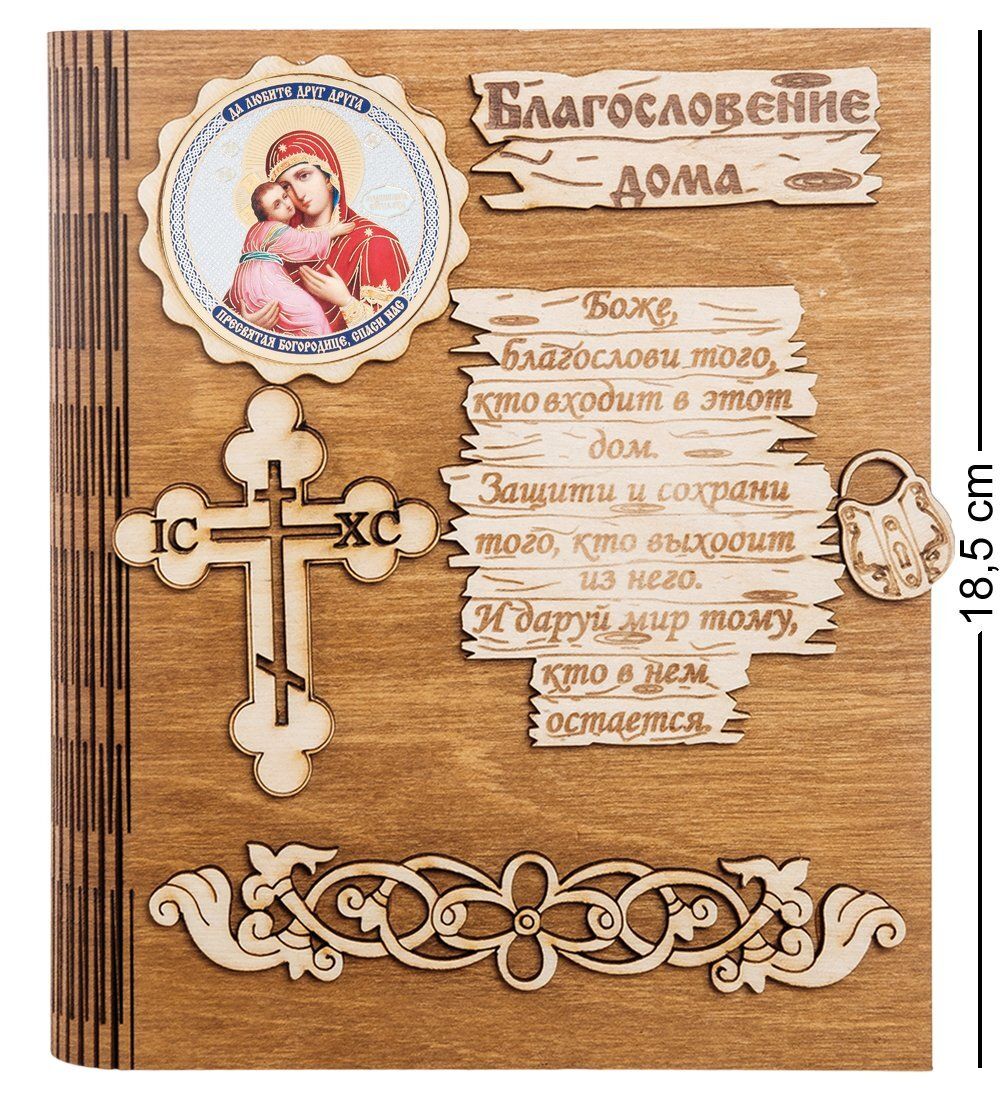 ДА ЛЮБИТЕ ДРУГ ДРУГА
ПРЕСВЯТАЯ БОГОРОДИЦЕ, СПАСИ НАС
Благословение
дома
Боже,
Благослови того,
кто входит в этот
дом.
Защити и сохрани
того, кто выходит
из него.
И даруй мир тому,
кто в нем
остается.
IC XC
18,5 cm